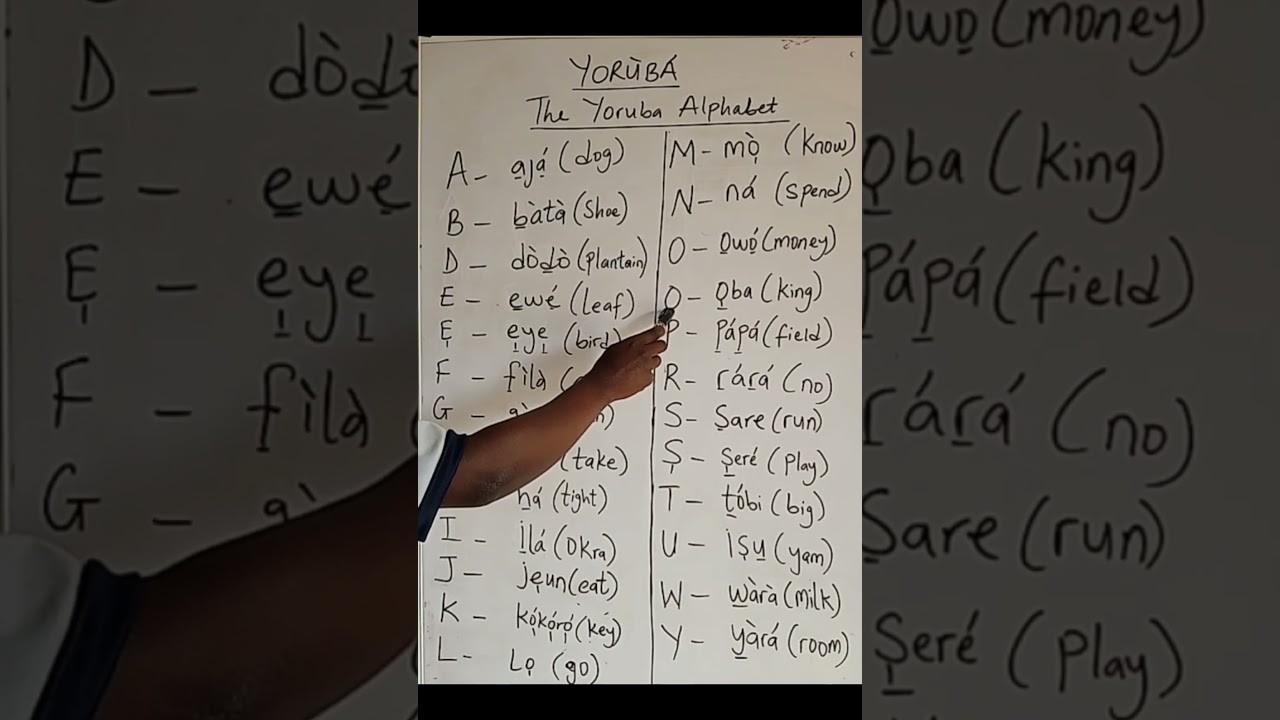 YORÙBÁ
The Yoruba Alphabet
A - ajá (dog)
B - bàtà (Shoe)
D - dòdò (plantain)
E - ewé (leaf)
Ẹ - ẹyẹ (bird)
F - fìlà
G -
(take)
há (tight)
I - ilá (Okra)
J - jẹun (eat)
K - kọ́kọ́rọ́ (key)
L - Lọ (go)
M - mọ̀ (know)
N - ná (spend)
O - owó (money)
O - ọba (king)
P - pápá (field)
R - rárá (no)
S - Sare (run)
Ṣ - Ṣeré (play)
T - tóbi (big)
U - iṣu (yam)
W - wàrà (milk)
Y - yàrá (room)